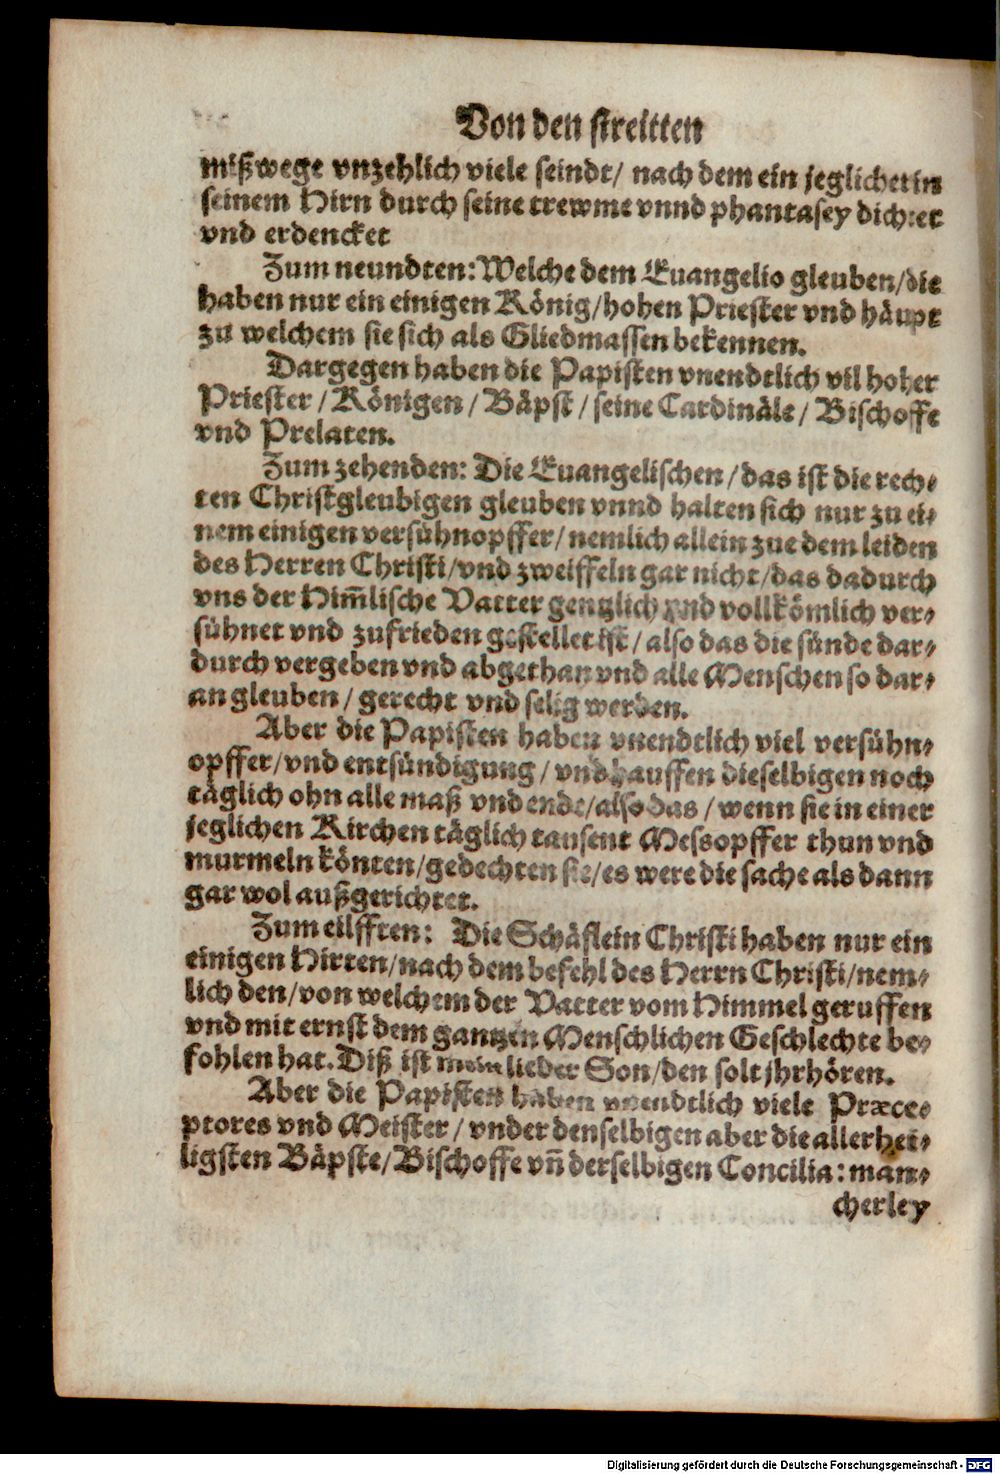 Von den streitten
mißwege vnzehlich viele seindt/ nach dem ein jeglicher in
seinem Hirn durch seine trewme vnnd phantasey dichtet
vnd erdencket
Zum neundten: Welche dem Euangelio gleuben/die
haben nur ein einigen König/hohen Priester vnd häupt
zu welchem sie sich als Gliedmassen bekennen.
Dargegen haben die Papisten vnendtlich vil hoher
Priester/ Königen/ Bäpst/ seine Cardinäle/ Bischoffe
vnd Prelaten.
Zum zehenden: Die Euangelischen/das ist die rech⸗
ten Christgleubigen gleuben vnnd halten sich nur zu ei⸗
nem einigen versühnopffer/nemlich allein zue dem leiden
des Herren Christi/vnd zweiffeln gar nicht/das dadurch
vns der Him̃lische Vatter gentzlich vnd vollkömlich ver⸗
sühnet vnd zufrieden gestellet ist/also das die sünde dar⸗
durch vergeben vnd abgethan vnd alle Menschen so dar⸗
an gleuben/ gerecht vnd selig werden.
Aber die Papisten haben vnendtlich viel versühn⸗
opffer/vnd entsündigung/ vnd hauffen dieselbigen noch
täglich ohn alle maß vnd ende/also das/ wenn sie in einer
jeglichen Kirchen täglich tausent Messopffer thun vnd
murmeln könten/gedechten sie/es were die sache als dann
gar wol außgerichtet.
Zum eilfften: Die Schäflein Christi haben nur ein
einigen Hirten/nach dem befehl des Herrn Christi/nem⸗
lich den/von welchem der Vatter vom Himmel geruffen
vnd mit ernst dem gantzen Menschlichen Geschlechte be⸗
fohlen hat. Diß ist mein lieber Son/den solt jhr hören.
Aber die Papisten haben vnendtlich viele Præce⸗
ptores vnd Meister/ vnder denselbigen aber die allerhei⸗
ligsten Bäpste/Bischoffe vñ derselbigen Concilia: man⸗
cherley
Digitalisierung gefördert durch die Deutsche Forschungsgemeinschaft - DFG